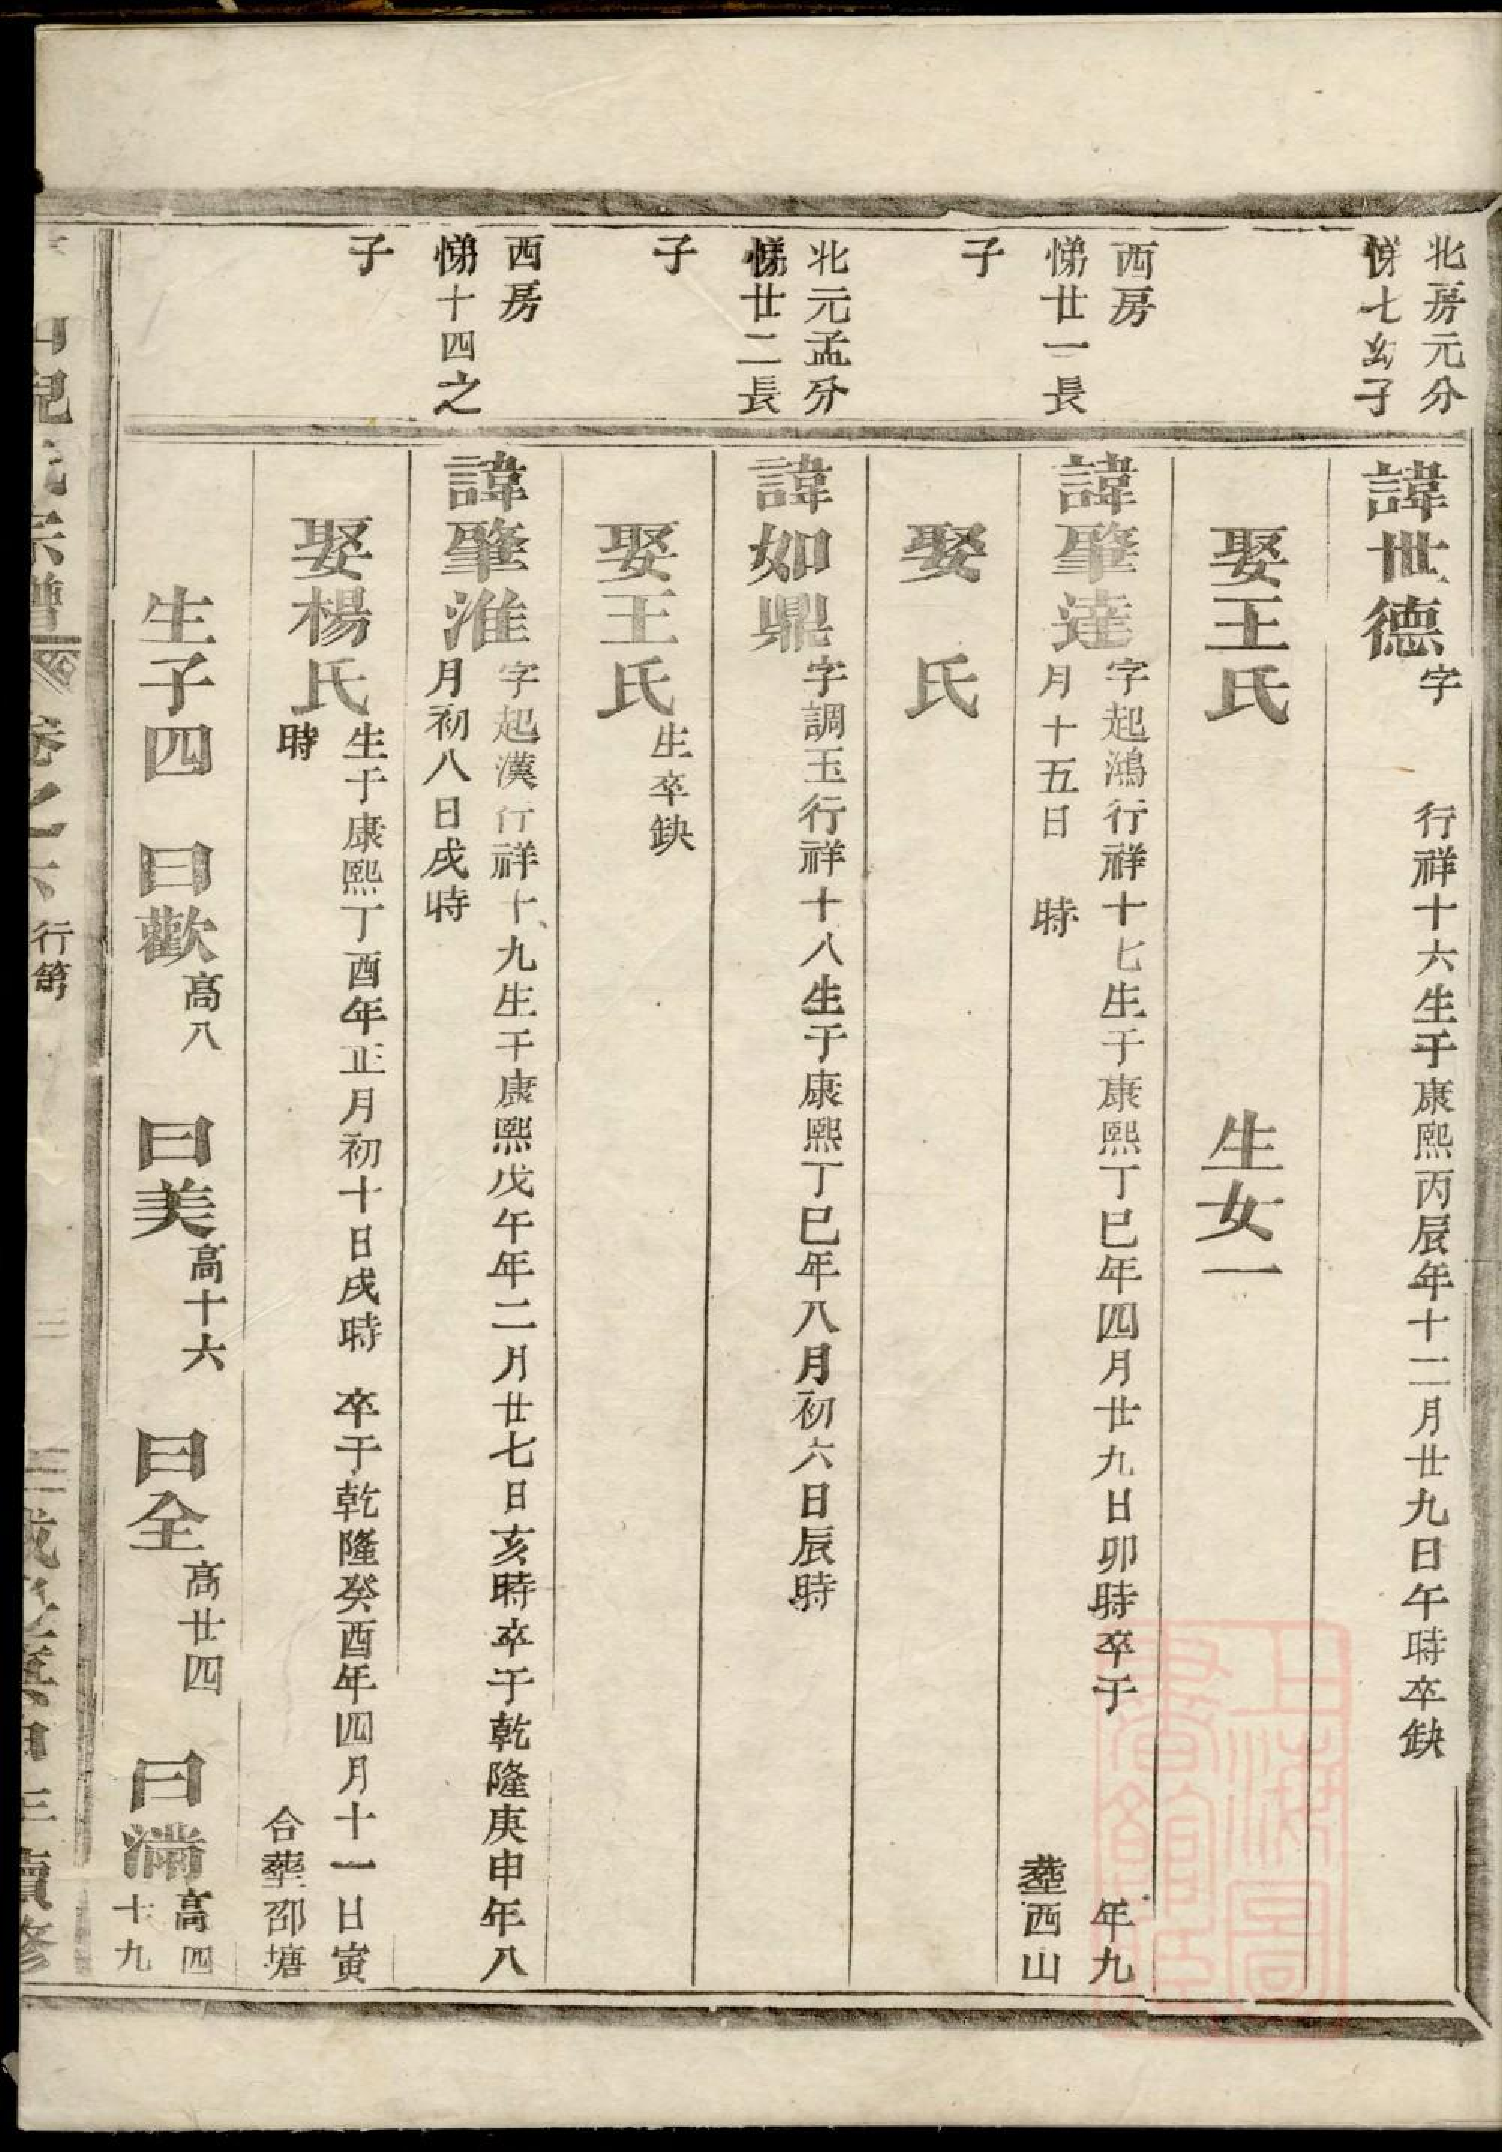 北房元分
悌七幼子
諱世德
字 行祥十六生于康熙丙辰年十二月廿九日午時卒缺
娶王氏 生女一
西房
悌廿一長
子
諱肇達
字起鴻行祥十七生于康熙丁巳年四月廿九日卯時卒于 年九
月十五日 時 塟西山
娶 氏
北元孟分
悌廿二長
子
諱如鼎
字調玉行祥十八生于康熙丁巳年八月初六日辰時
娶王氏
生卒缺
西房
悌十四之
子
諱肇淮
字起漢行祥十九生于康熙戊午年二月廿七日亥時卒于乾隆庚申年八
月初八日戌時
娶楊氏
生于康熙丁酉年正月初十日戌時 卒于乾隆癸酉年四月十一日寅
時 合塟邵塘
生子四 曰歡 高八 曰美 高十六 曰全 高廿四 曰滿 高四十九
氏宗譜 卷之六 行第
三續修
上海圖書館藏